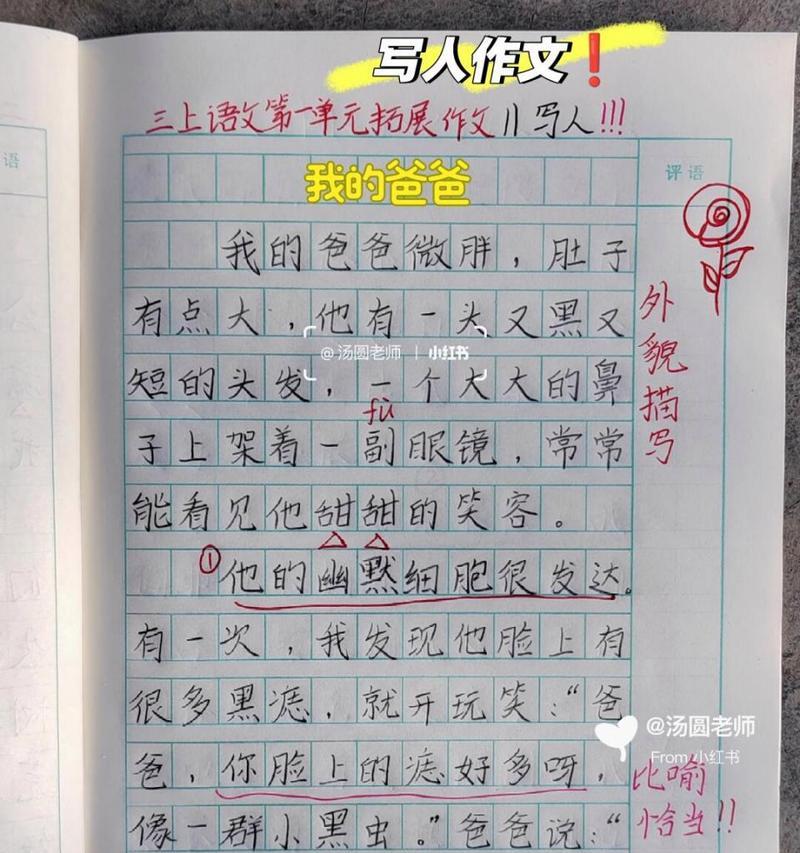 写人作文❗
三上语文第一单元拓展作文||写人!!!
我的爸爸
评语
语
我的爸爸微胖，肚子
有点大，他有一头又黑又
@汤圆老师 | 小红书
短的头发，一个大大的鼻
fù
子上架着一副眼镜，常常
能看见他甜甜的笑容。
外貌描写
①他的幽默细胞很发达。
有一次，我发现他脸上有
很多黑痣，就开玩笑：“爸
@汤圆老师
From 小红书
爸，你脸上的痣好多呀，
比喻
恰当!!
像一群小黑虫。”爸爸说：“